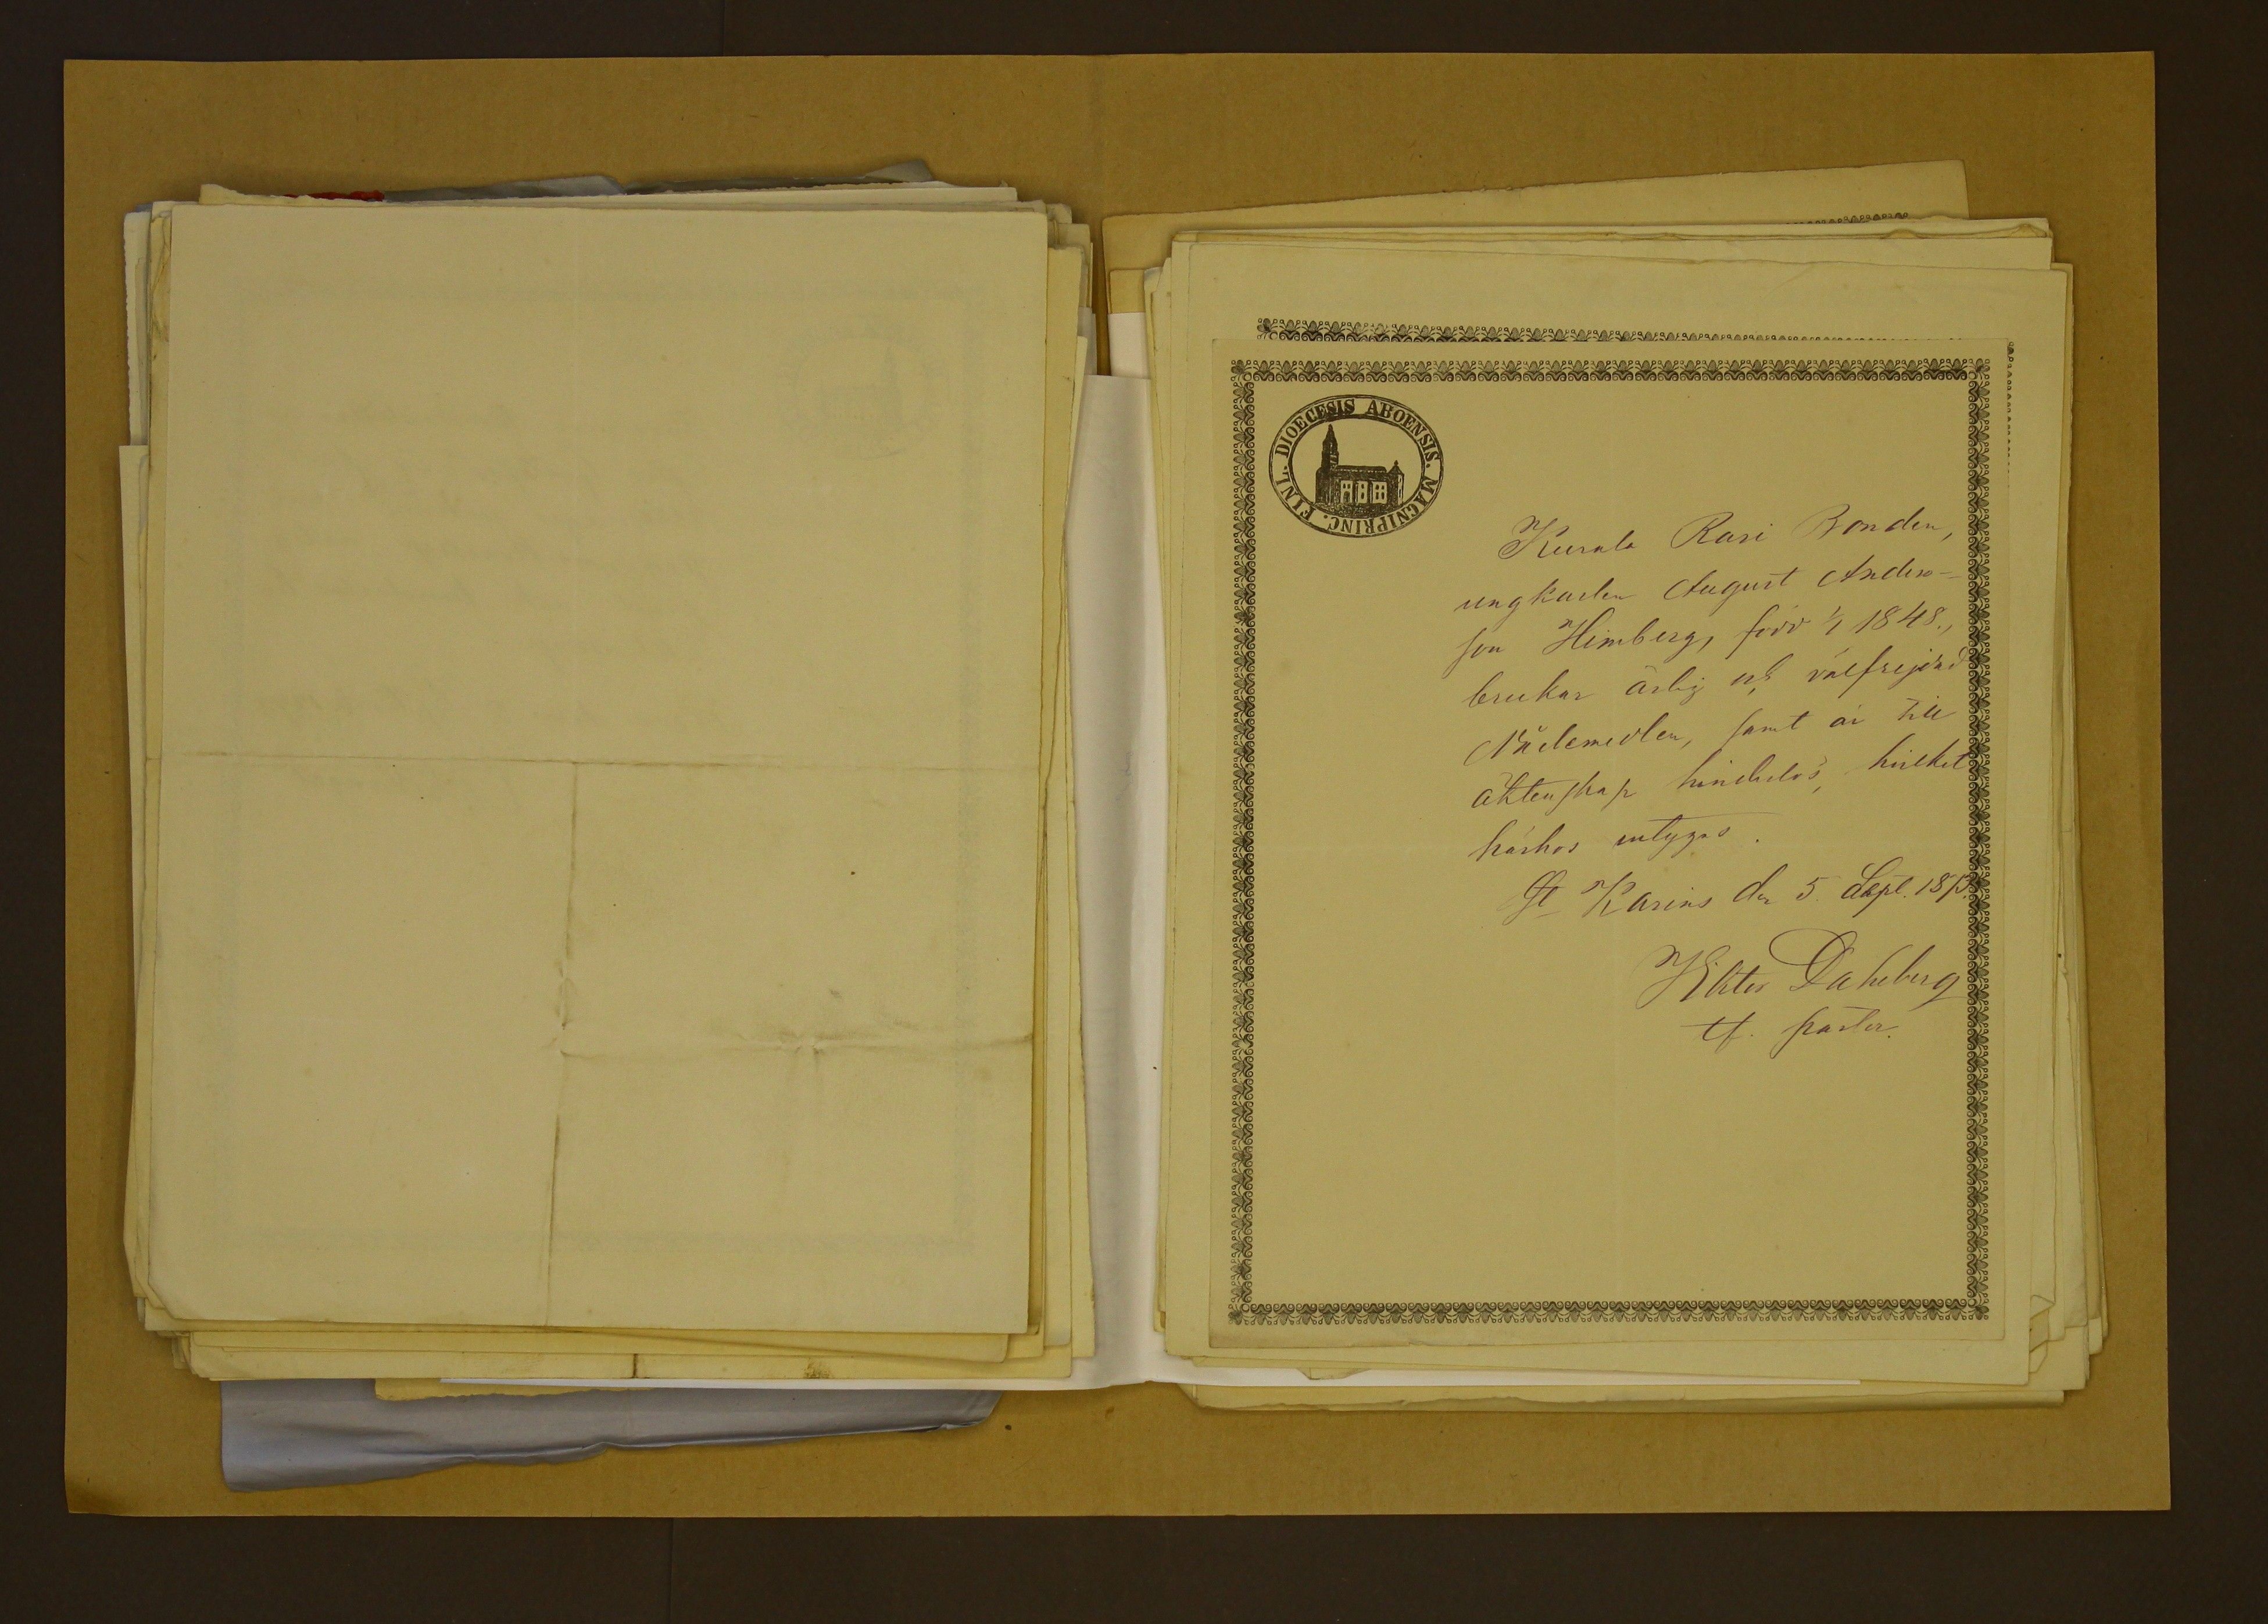 DIOECESIS ABOENSIS. MAGNIPRINC. FINL.
Kurala Rasi Bonden,
ungkarlen August Anders-
son Himberg, född 1/1 1848.,
brukar ärlig och välfrejdad
Nådemedlen, samt är till
äktenskap hinderlös, hvilket
härhos intygas.
St Karins den 5. Sept.
Viktor Dahlberg
tf. pastor.